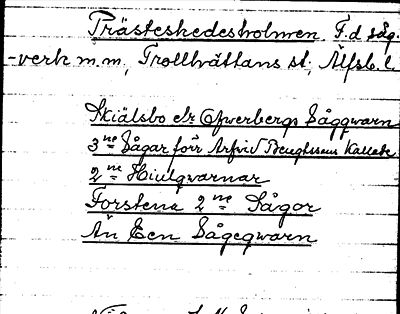 Prästeskedesholmen. F.d såg-
-verk m.m., Trollhättans st., Älfsb. l.
Skiälsbo elr Ofwerbergs Sågqwarn
3 ne Sågar förr Arfvid Benghtssons Kallade
2 ne Hiulqwarnar
Forstena 2 ne Sågor
Än Een Sågeqwarn